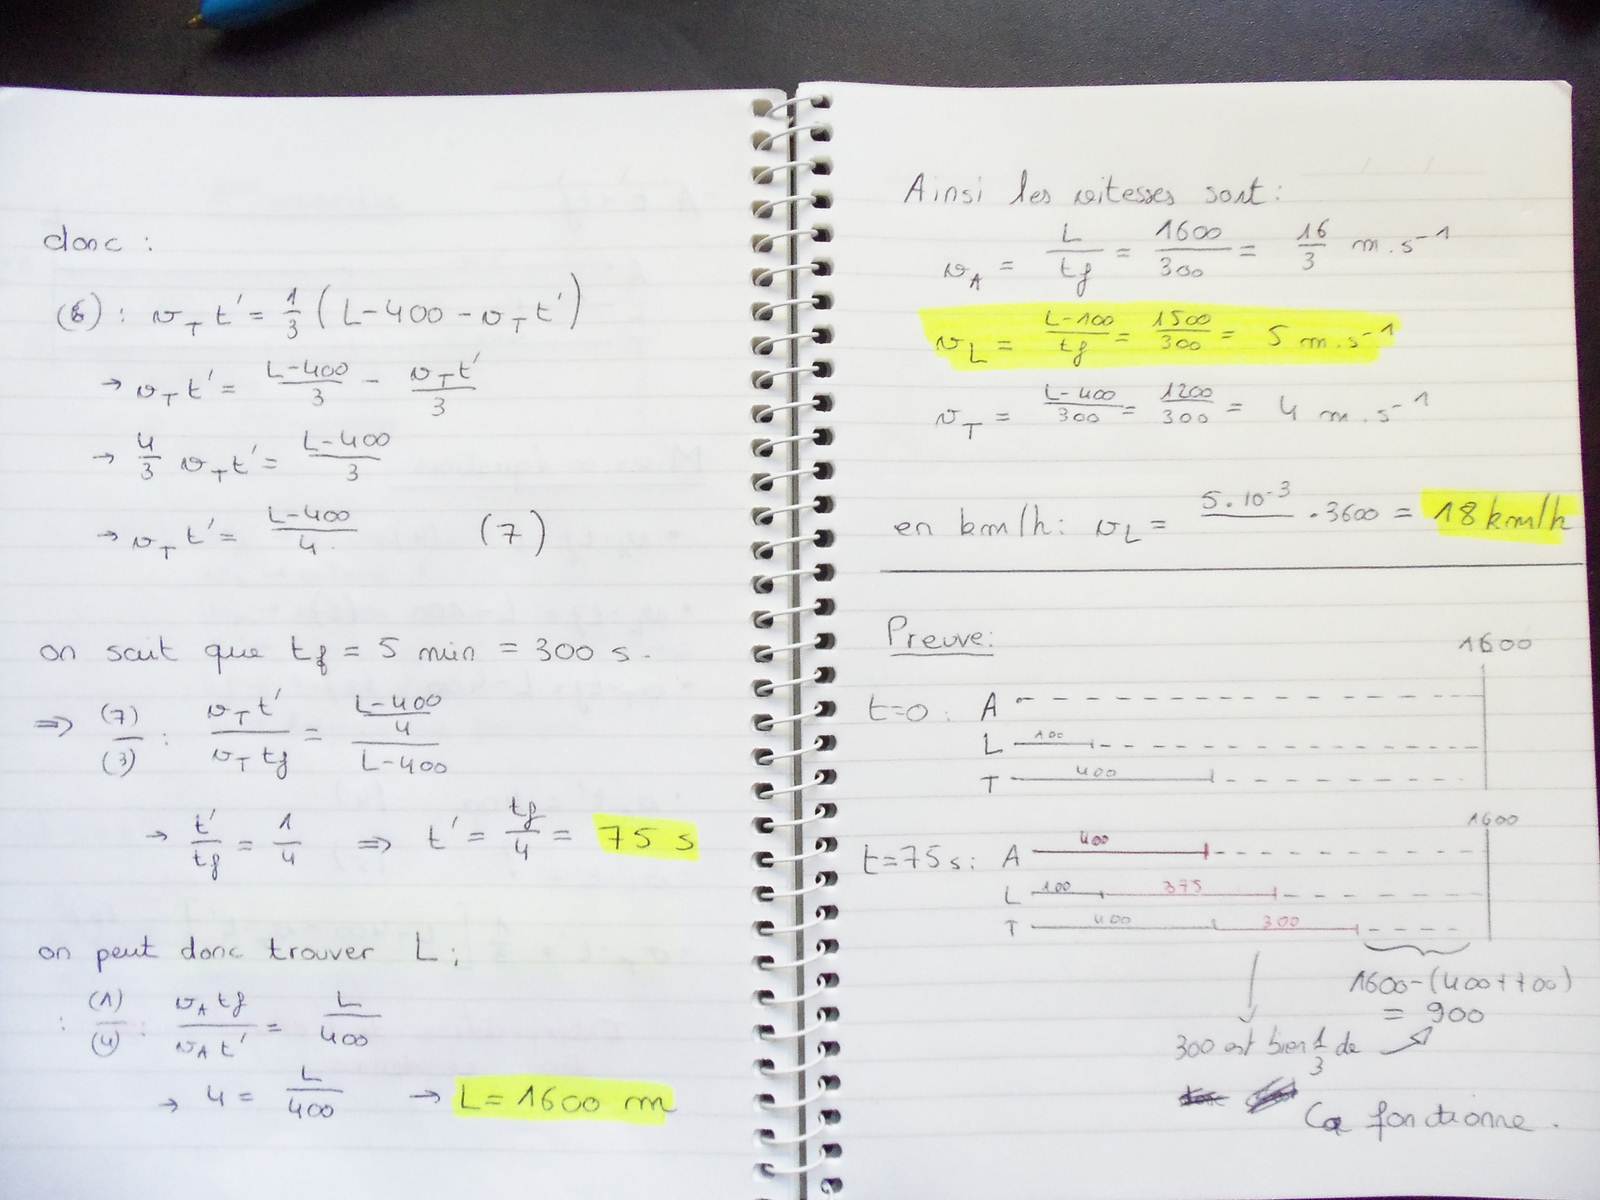 donc :
(6) : v_T t' = 1/3 (L-400 - v_T t')
→ v_T t' = (L-400)/3 - (v_T t')/3
→ 4/3 v_T t' = (L-400)/3
→ v_T t' = (L-400)/4 (7)
on sait que tf = 5 min = 300 s.
⇒ (7)/(3) : (v_T t')/(v_T tf) = ((L-400)/4)/(L-400)
→ t'/tf = 1/4 ⇒ t' = tf/4 = 75 s
on peut donc trouver L ;
: (1)/(4) : (v_A tf)/(v_A t') = L/400
→ 4 = L/400 → L = 1600 m
Ainsi les vitesses sont :
v_A = L/tf = 1600/300 = 16/3 m.s⁻¹
v_L = (L-100)/tf = 1500/300 = 5 m.s⁻¹
v_T = (L-400)/300 = 1200/300 = 4 m.s⁻¹
en km/h : v_L = 5.10⁻³ . 3600 = 18 km/h
Preuve :
1600
t=0 : A
L 100
T 400
1600
t=75 s : A 400
L 100 375
T 400 300
1600-(400+300)
= 900
300 est bien 1/3 de
Ca fonctionne.